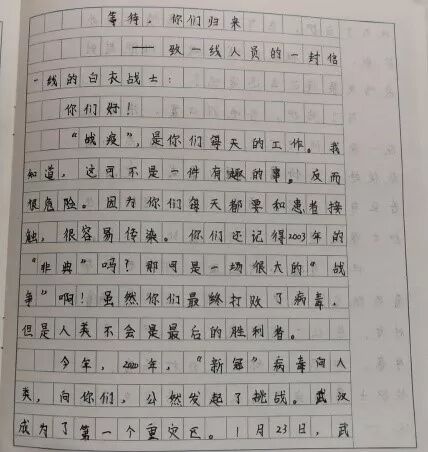 等待，你们归来
——致一线人员的一封信
一线的白衣战士：
你们好！
“战疫”，是你们每天的工作。我
知道，这可不是一件有趣的事。反而
很危险。因为你们每天都要和患者接
触，很容易传染。你们还记得2003年的
“非典”吗？那可是一场很大的“战
争”啊！虽然你们最终打败了病毒，
但是人类不会是最后的胜利者。
今年，2020年，“新冠”病毒向人
类，向你们，公然发起了挑战。武汉
成为了第一个重灾区。1月23日，武